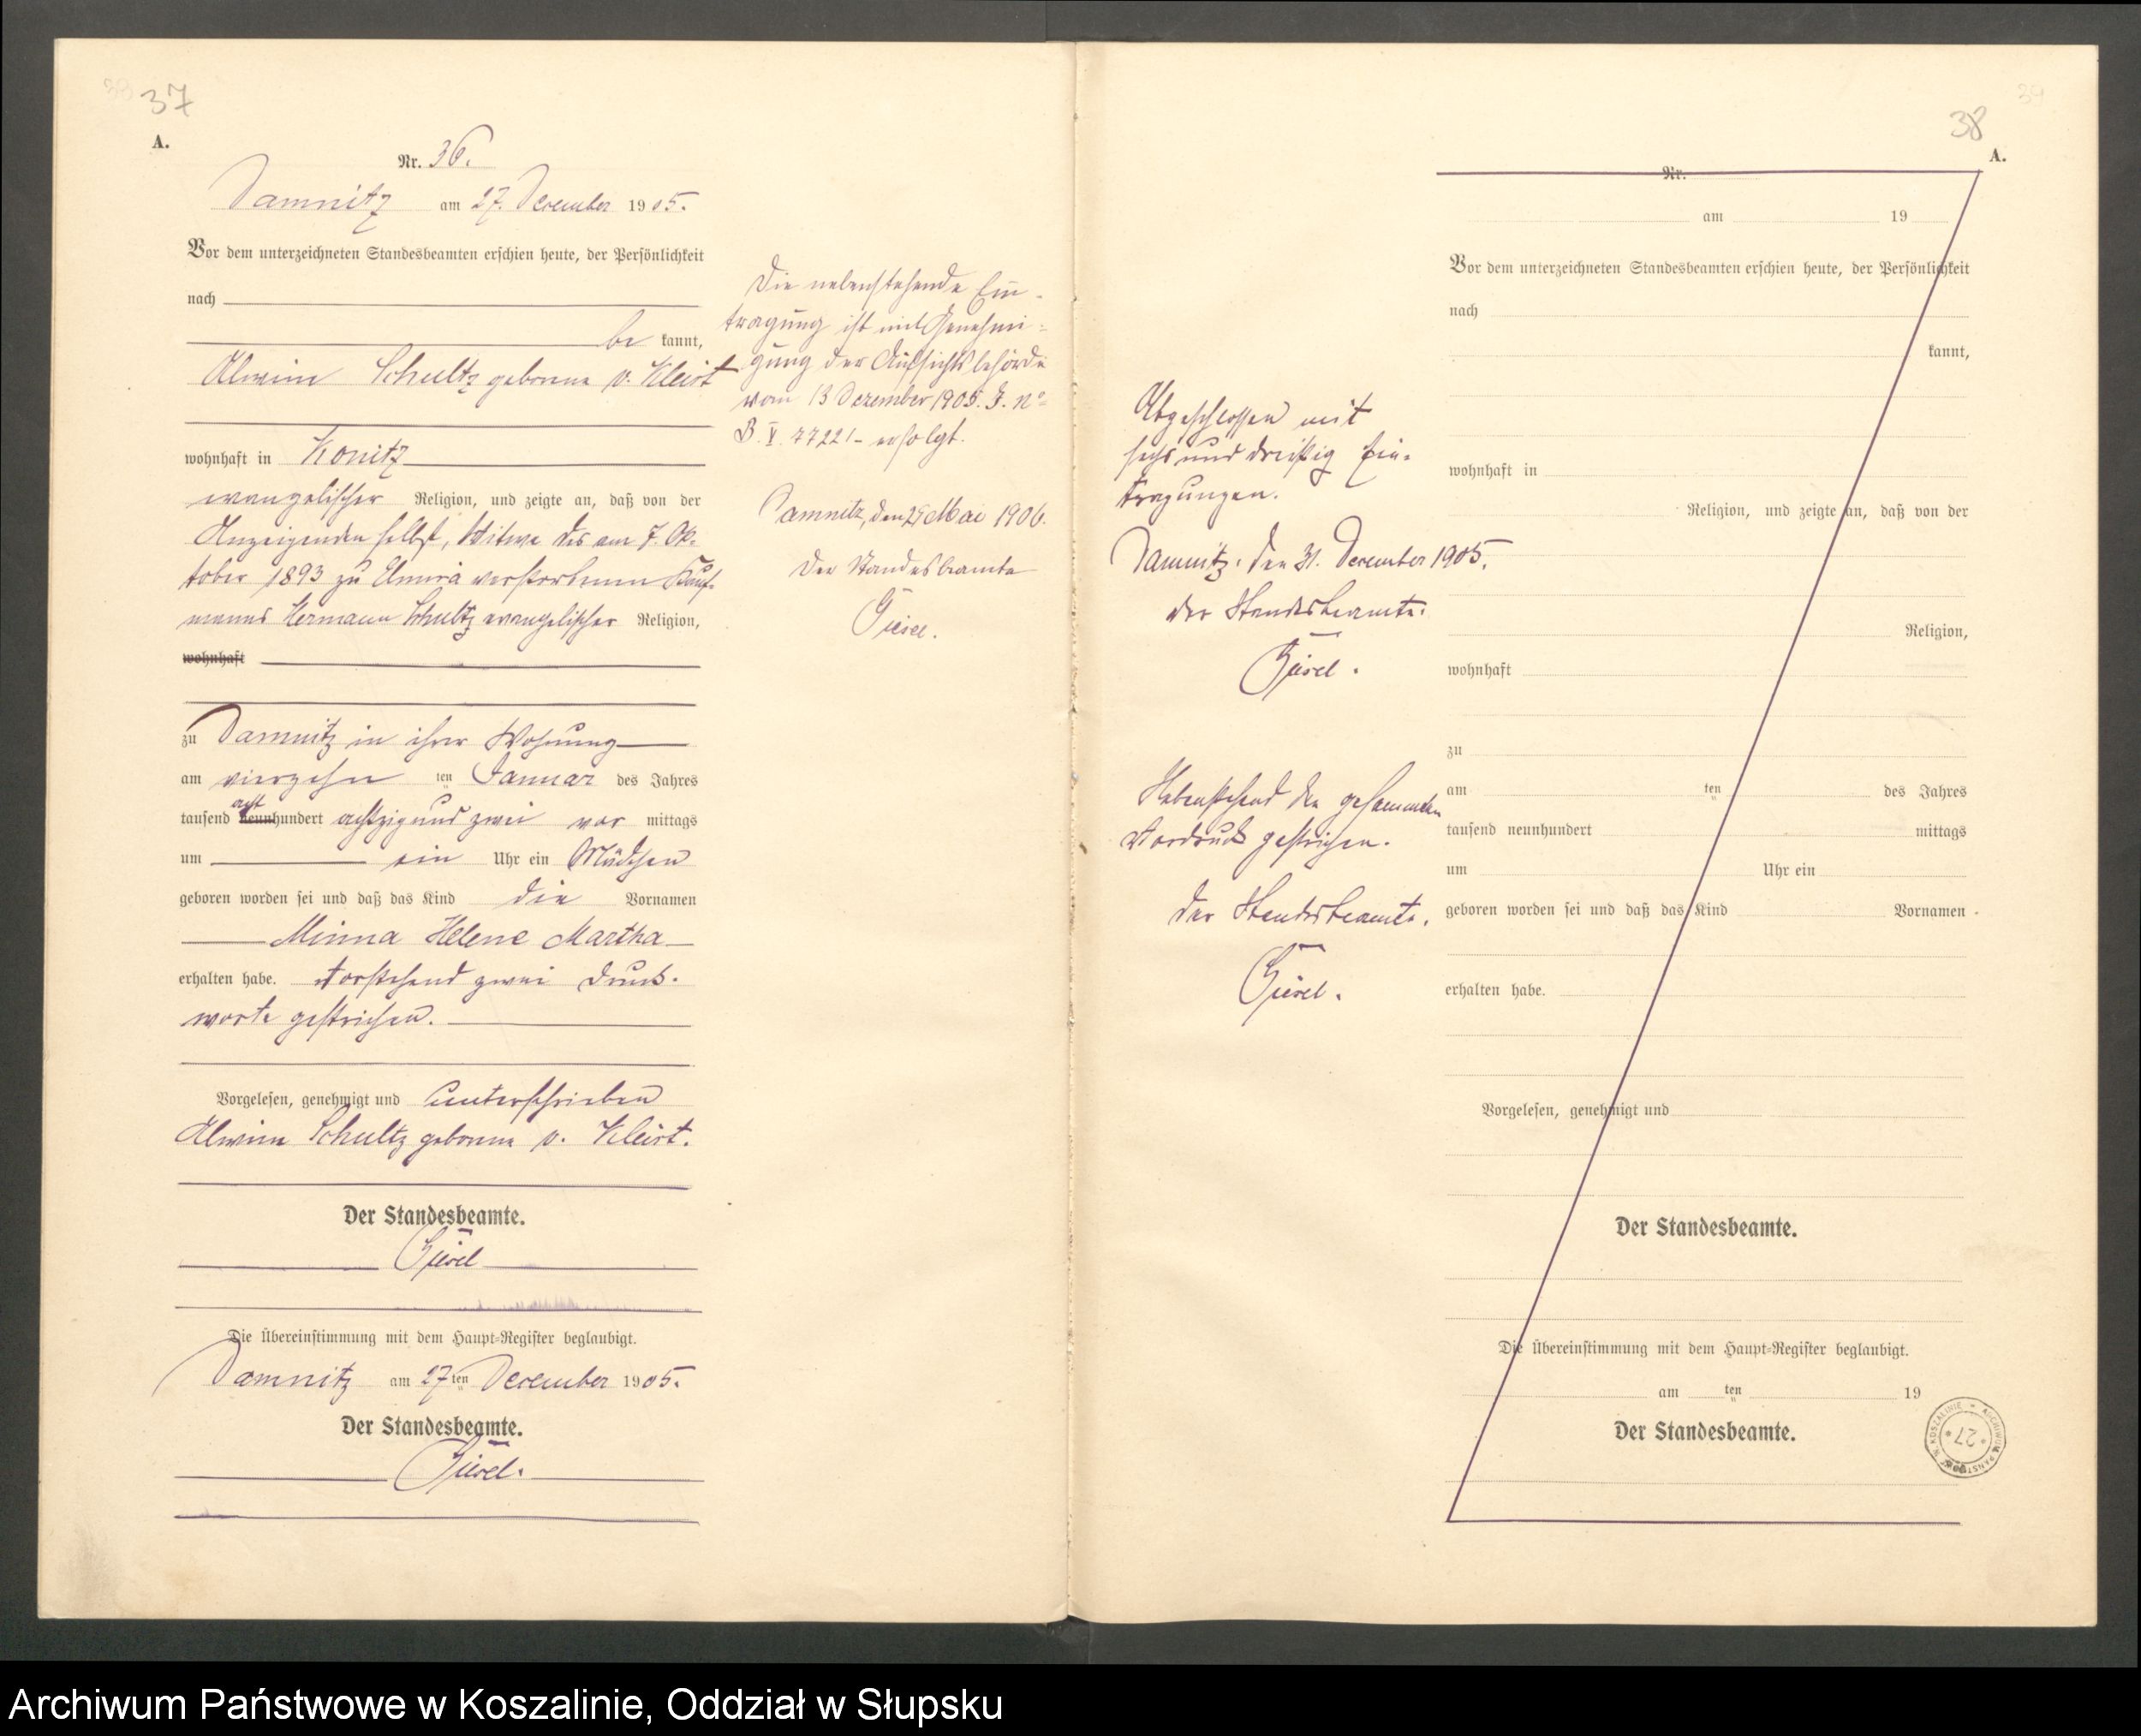 37
A.
Nr. 36.
Damnitz am 27. December 1905.
Vor dem unterzeichneten Standesbeamten erschien heute, der Persönlichkeit
nach
be kannt,
Alwine Schultz geborene v. Kleist
wohnhaft in Konitz
evangelischer Religion, und zeigte an, daß von der
Anzeigenden selbst, Witwe des am 7. Ok-
tober 1893 zu verstorbenen Kauf-
manns Hermann Schultz evangelischer Religion,
wohnhaft
zu Damnitz in ihrer Wohnung
am vierzehn ten Januar des Jahres
tausend acht neunhundert achtzig und zwei vor mittags
um ein Uhr ein Mädchen
geboren worden sei und daß das Kind die Vornamen
Minna Helene Martha
erhalten habe. Vorstehend zwei Druck-
worte gestrichen.
Vorgelesen, genehmigt und unterschrieben
Alwine Schultz geborene v. Kleist.
Der Standesbeamte.
Giesel
Die Übereinstimmung mit dem Haupt-Register beglaubigt.
Damnitz am 27ten December 1905.
Der Standesbeamte.
Giesel.
Die nebenstehende Ein-
tragung ist mit Genehmi-
gung der Aufsichtsbehörde
vom 13 Dezember 1905. J. No
B. V. 77221 - erfolgt.
Damnitz, den 25 Mai 1906.
Der Standesbeamte
Giesel.
38
39
A.
Abgeschlossen mit
sechs und dreißig Ein-
tragungen.
Damnitz, den 31. December 1905.
Der Standesbeamte.
Giesel.
Nebenstehend den gesammten
Vordruck gestrichen.
Der Standesbeamte.
Giesel.
Nr.
am 19
Vor dem unterzeichneten Standesbeamten erschien heute, der Persönlichkeit
nach
kannt,
wohnhaft in
Religion, und zeigte an, daß von der
Religion,
wohnhaft
zu
am ten des Jahres
tausend neunhundert mittags
um Uhr ein
geboren worden sei und daß das Kind Vornamen
erhalten habe.
Vorgelesen, genehmigt und
Der Standesbeamte.
Die Übereinstimmung mit dem Haupt-Register beglaubigt.
am ten 19
Der Standesbeamte.
ARCHIWUM PAŃSTWOWE W KOSZALINIE
* 27 *
Archiwum Państwowe w Koszalinie, Oddział w Słupsku